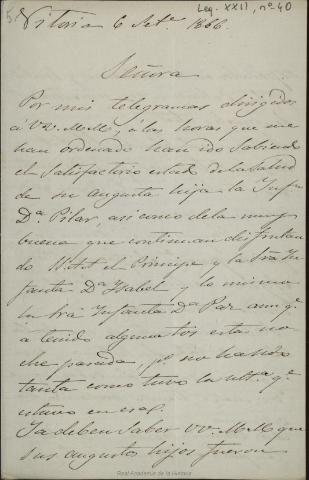 5.
Leg. XXII, nº 40
Vitoria 6 Set.e 1866.
Señora
Por mis telegramas dirigidos
á VV. M.M., á las horas que me
han ordenado, han ido sabiendo
el satisfactorio estado de la salud
de su augusta hija la Inf.ta
D.a Pilar, asi como de la muy
buena que continuan disfrutan
do S.A.A. el Principe y la Sra In
fanta D.a Isabel y lo mismo
la Sra Infanta D.a Paz aun q.e
á tenido alguna tos esta no
che pasada, p.o no ha sido
tanta como tuvo la ult.a q.e
estuvo en esa.
Ya deben saber VV. M.M. que
sus augustos hijos fueron
Real Academia de la Historia